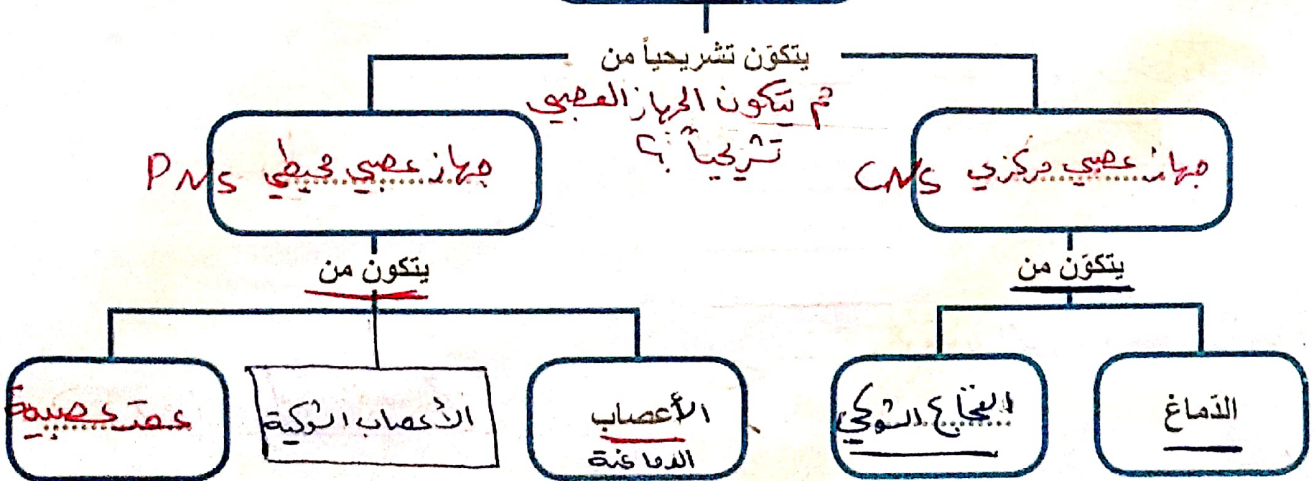 يتكوّن تشريحياً من
مم يتكون الجهاز العصبي
تشريحياً ؟
جهاز عصبي مركزي CNS
جهاز عصبي محيطي PNS
يتكوّن من
يتكون من
الدّماغ
النخاع الشوكي
الأعصاب
الدماغية
الأعصاب الشوكية
عقد عصبية